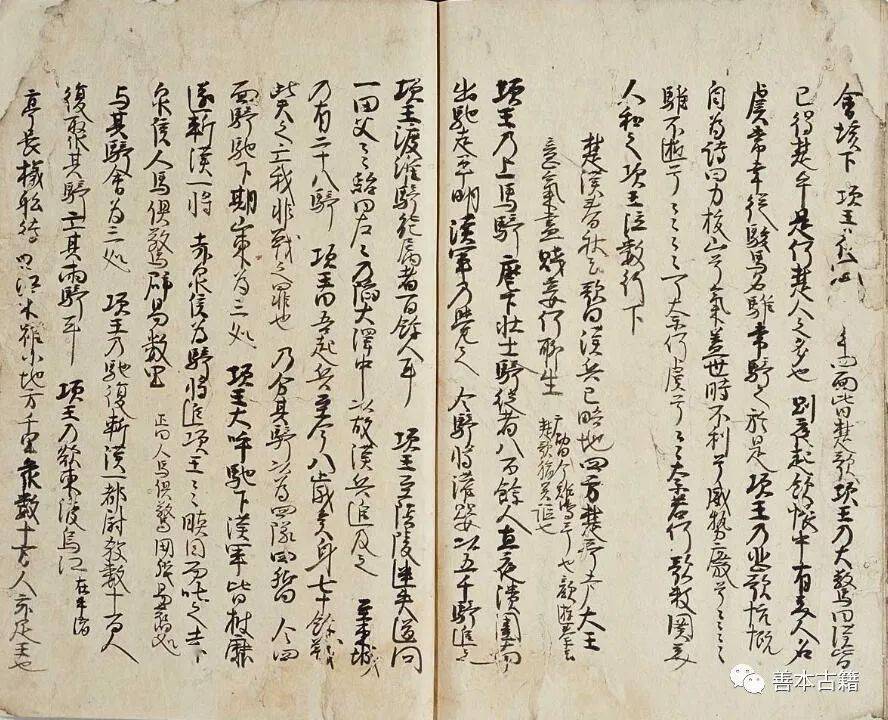 會垓下 項王 四面皆楚歌項王乃大驚曰漢皆
已得楚乎是何楚人之多也 則夜起飲帳中有美人名
虞常幸從駿馬名騅常騎之於是項王乃悲歌忼慨
自為詩曰力拔山兮氣盖世時不利兮威勢廢兮
騅不逝兮 可奈何虞兮 奈若何歌數闋美
人和之項王泣數行下
楚漢春秋云歌曰漢兵已略地四方楚歌聲大王
意氣盡賤妾何聊生
楚歌
項王乃上馬騎麾下壮士騎從者八百餘人直夜潰圍南
出馳走平明漢軍乃覺之 令騎將灌嬰以五千騎追之
項王渡淮騎能属者百餘人耳 項王至陰陵迷失道問
一田父々紿曰左々乃陷大澤中以故漢兵追及之 至東城
乃有二十八騎 項王曰吾起兵至今八歲矣身七十餘戦
此天之亡我非戦之罪也 乃分其騎以為四隊四嚮 令四
面騎馳下期山東為三処 項王大呼馳下漢軍皆披靡
遂斬漢一將 赤泉侯為騎將追項王々瞋目而叱之赤
泉侯人馬俱驚辟易數里 正曰人馬俱驚
与其騎會為三処 項王乃馳復斬漢一都尉殺數十百人
復聚其騎亡其両騎耳 項王乃欲東渡烏江
亭長檥舩待 曰江東雖小地方千里衆數十万人亦足王也
善本古籍